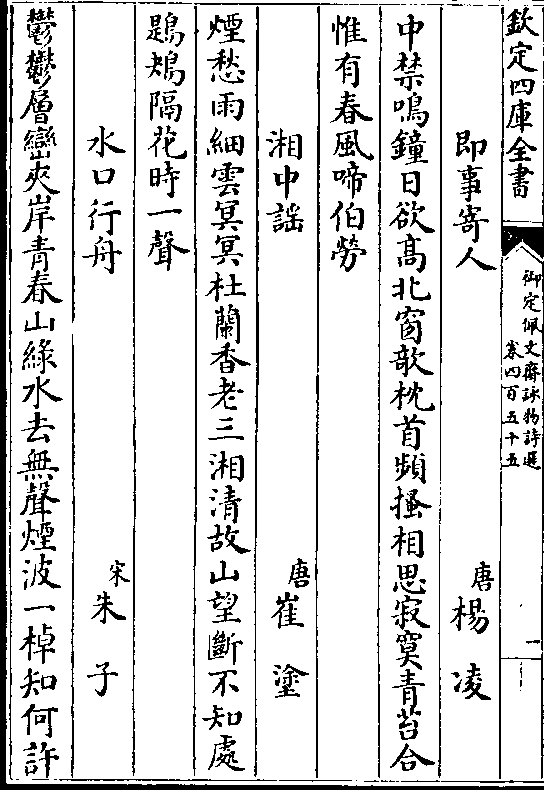 欽定四庫全書
御定佩文齋詠物詩選
卷四百五十五
一
即事寄人
唐楊凌
中禁鳴鐘日欲髙北窗欹枕首頻搔相思寂寞青苔合
惟有春風啼伯勞
湘中謡
唐崔塗
煙愁雨細雲冥冥杜蘭香老三湘清故山望斷不知處
鶗鴂隔花時一聲
水口行舟
宋朱子
鬱鬱層巒夾岸青春山綠水去無聲煙波一棹知何許